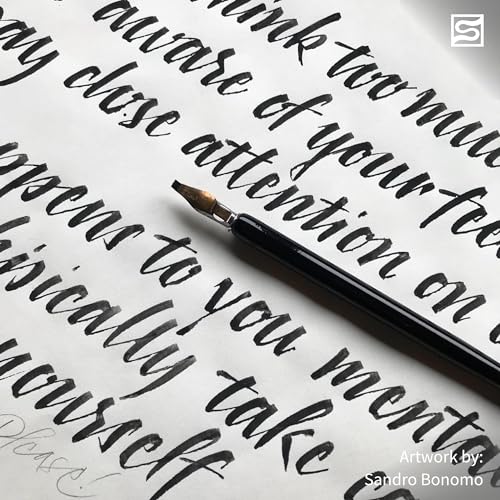 hink too mu
aware of your feel
ay close attention on
ppens to you menta
hisically take
yourself
Please!
Artwork by:
Sandro Bonomo